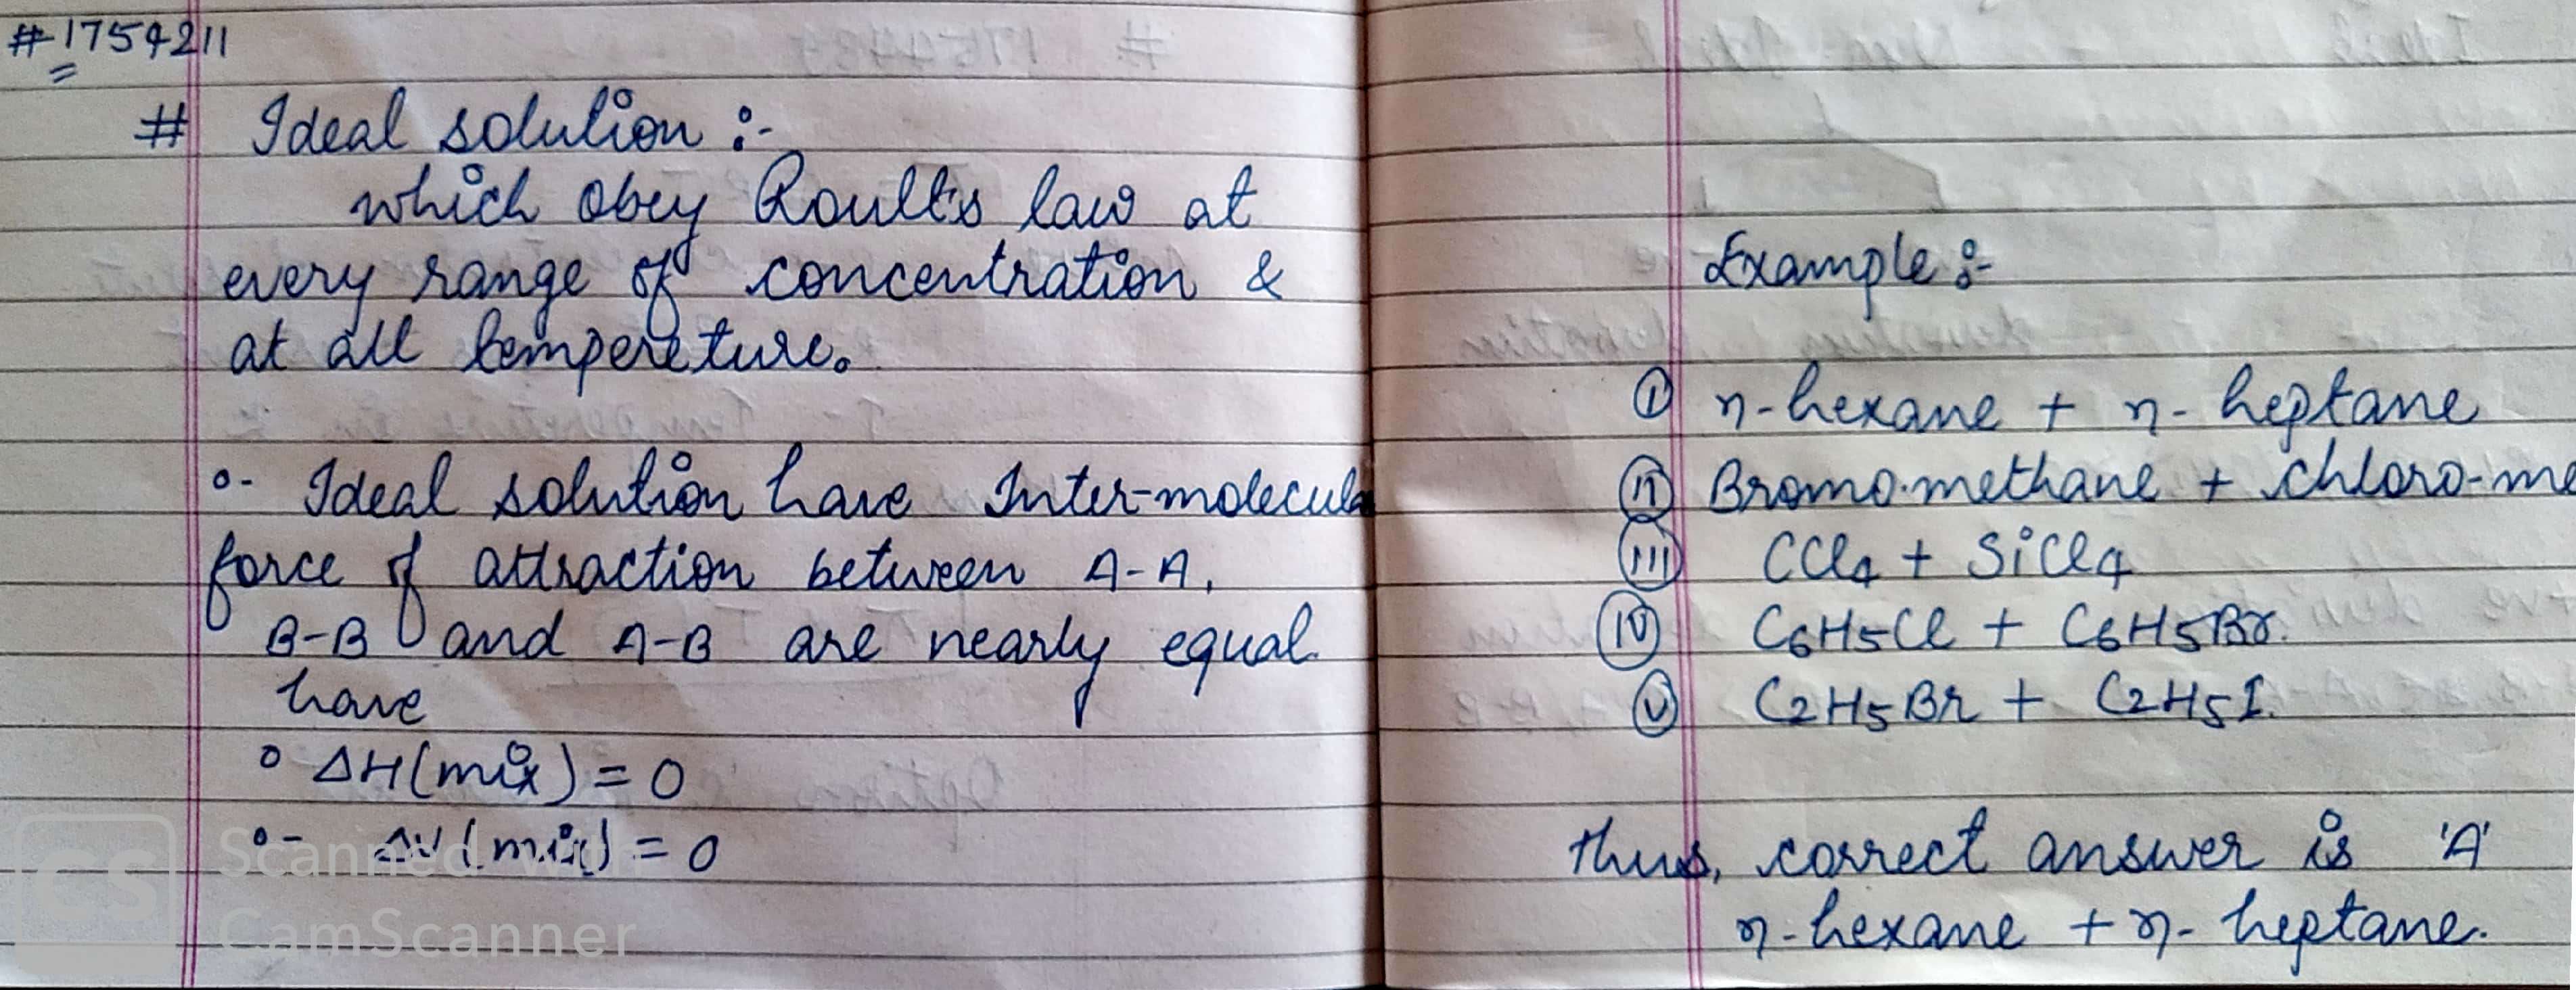 #1754211
# Ideal solution :-
which obey Roult's law at
every range of concentration &
at all tempereture.
o- Ideal solution have Inter-molecula
force of attraction between A-A,
B-B and A-B are nearly equal.
have
o ΔH(mix) = 0
o- ΔV(mix) = 0
Scanned with
CS
CamScanner
Example :-
(I) n-hexane + n-heptane
(II) Bromo-methane + chloro-me
(III) CCl4 + SiCl4
(IV) C6H5Cl + C6H5Br.
(V) C2H5Br + C2H5I.
thus, correct answer is 'A'
n-hexane + n-heptane.